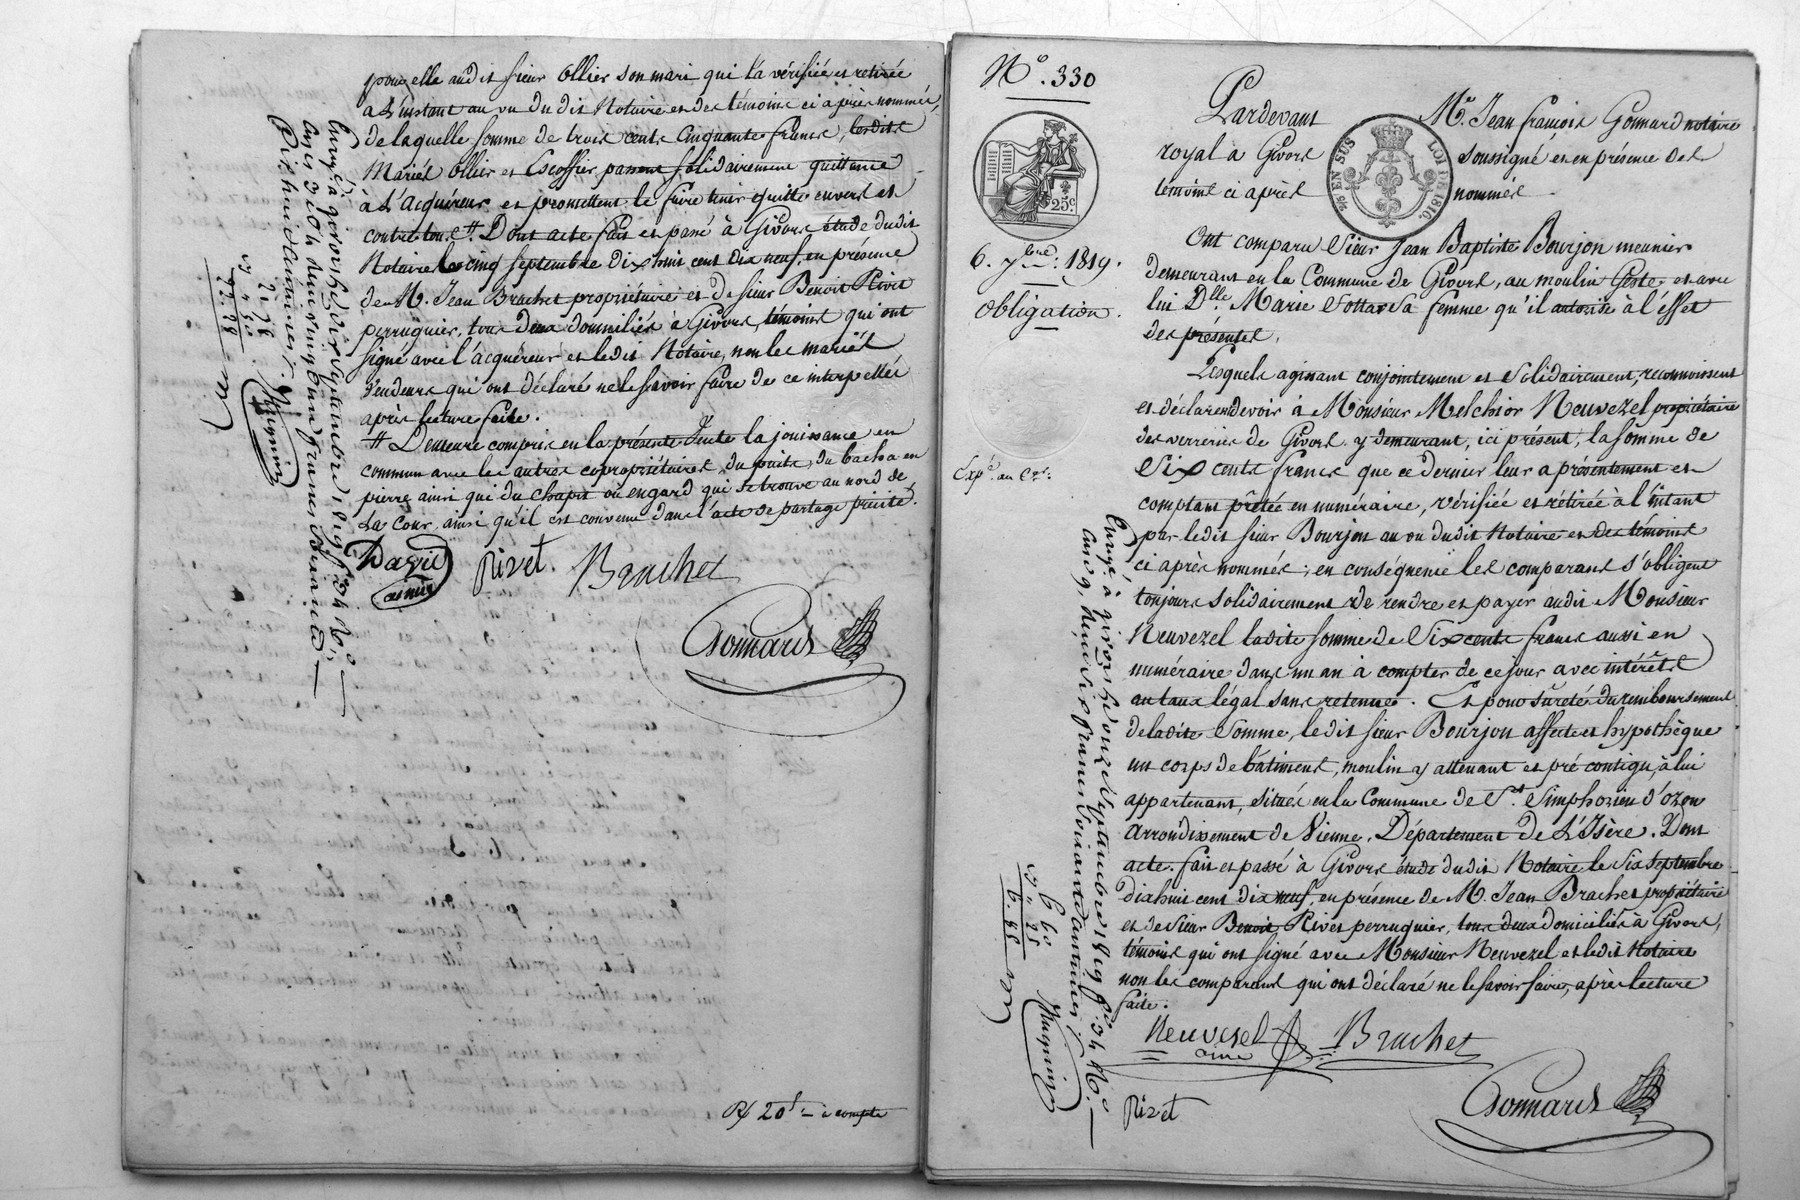 pour elle audit sieur Ollier son mari qui l'a vérifiée et retirée
à l'instant au vu du dit Notaire et des témoins ci après nommés,
de laquelle somme de trois cents cinquante francs, lesdits
Mariés Ollier et Escoffier passent solidairement quittance
à l'Acquéreur et promettent le faire tenir quitte envers et
contre tous. # Dont acte fait et passé à Givors étude dudit
Notaire le cinq septembre dix huit cent dix neuf, en présence
de M. Jean Brachet propriétaire et de sieur Benoit Rivet
perruquier, tous deux domiciliés à Givors, témoins qui ont
signé avec l'acquéreur et ledit Notaire, non les mariés
vendeurs qui ont déclaré ne le savoir faire de ce interpellés
après lecture faite.
# Demeure compris en la présente Vente la jouissance en
commun avec les autres copropriétaires, du puits, du bacha en
pierre ainsi qui du chapit ou engard qui se trouve au nord de
la Cour, ainsi qu'il est convenu dans l'acte de partage précité.
David
Rivet. Brachet
Gonnard
Enregé à givors le dix septembre 1819 fo 34 No
vingt un francs soixante
21.78
23.98
Rx 20f = à compte
No. 330
25c.
EN SUS
LOI DE 1816.
6. 7bre 1819.
Obligation.
Expé. au Cer.
Pardevant Me. Jean François Gonnard notaire
royal à Givors soussigné et en présence des
témoins ci après nommés
Ont comparu Sieur Jean Baptiste Bourjon meunier
demeurant en la Commune de Givors, au moulin Geste, et avec
lui Dlle. Marie Sottas Sa femme qu'il autorise à l'effet
des présentes,
Lesquels agissant conjointement et Solidairement, reconnoissent
et déclarent devoir à Monsieur Melchior Neuvezel propriétaire
des verreries de Givors y demeurant, ici présent, la somme de
Six cents francs que ce dernier leur a présentement et
comptant prêtée en numéraire, vérifiée et rétirée à l'instant
par ledit sieur Bourjon au vu dudit Notaire et des témoins
ci après nommés; en conséquence les comparans s'obligent
toujours solidairement de rendre et payer audit Monsieur
Neuvezel ladite somme de Six cents francs aussi en
numéraire dans un an à compter de ce jour avec intérêts
au taux légal sans retenue. Et pour sureté du remboursement
de ladite Somme, ledit sieur Bourjon affecte et hypothèque
un corps de bâtiment, moulin y attenant et pré contigu, à lui
appartenant, situés en la Commune de St. Simphorien d'ozon
Arrondissement de Vienne, Département de L'Isère. Dont
acte. fait et passé à Givors étude dudit Notaire le Six Septembre
dix huit cent dix neuf, en présence de M. Jean Brachet propriétaire
et de Sieur Benoit Rivet perruquier, tous deux domiciliés à Givors,
témoins qui ont signé avec Monsieur Neuvezel et ledit Notaire
non les comparans qui ont déclaré ne le savoir faire, après lecture
faite.
Neuvesel Brachet
aîné
Gonnard
Rivet
Enregé à givors le douze septembre 1819 fo 34 No
6 60